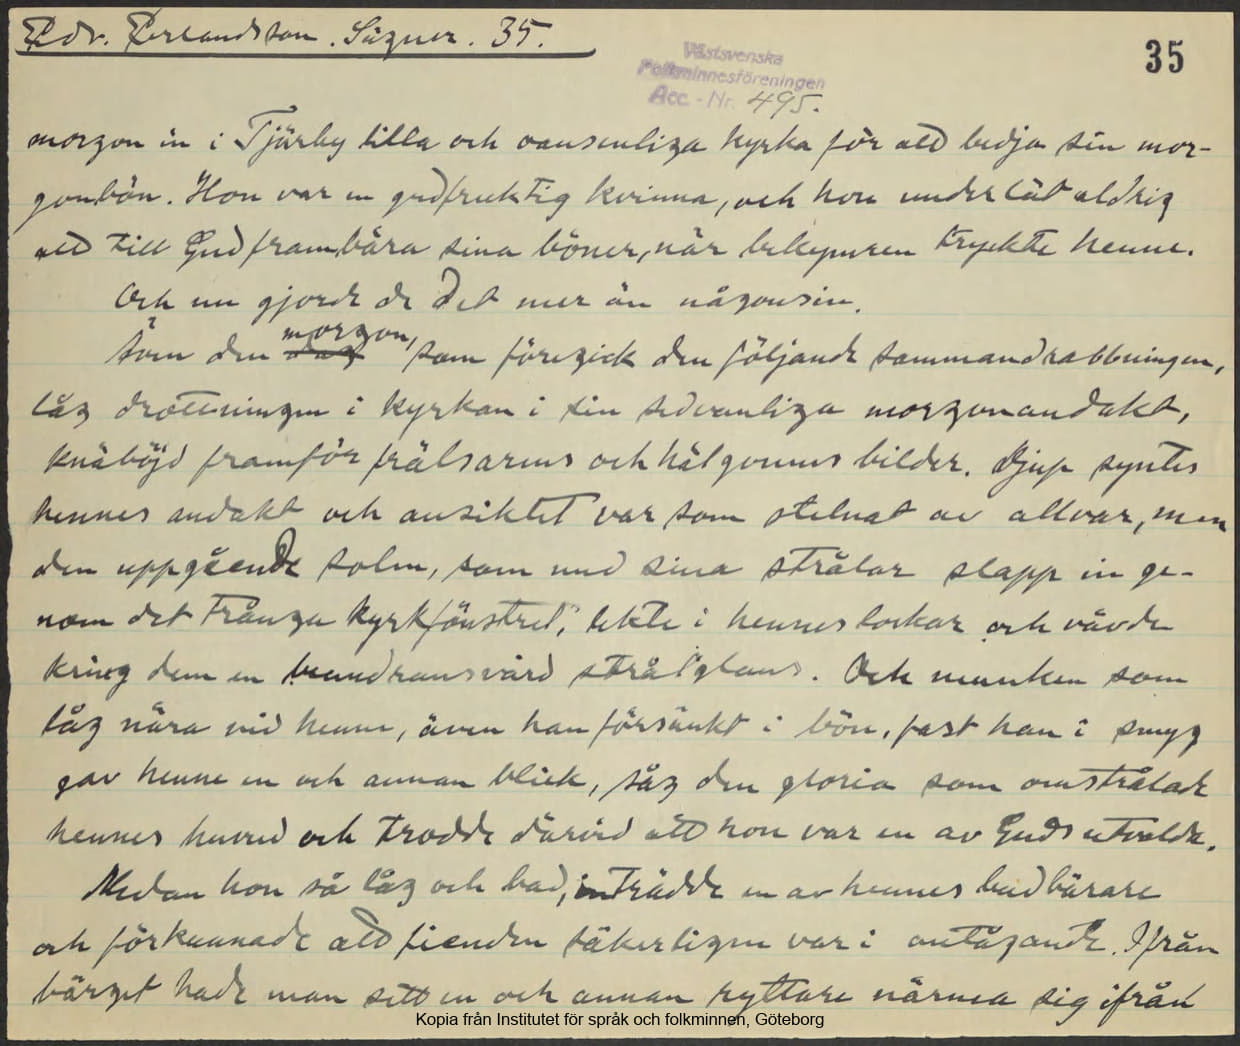 Edv. Erlandsson. Sägner. 35.
35
Västsvenska
Folkminnesföreningen
Acc. - Nr. 495.
morgon in i Tjärby lilla och oansenliga kyrka för att bedja sin mor-
gonbön. Hon var en gudfruktig kvinna, och hon underlät aldrig
att till Gud frambära sina böner, när bekymren tryckte henne.
Och nu gjorde de det mer än någonsin.
Som den morgon, som föregick den följande sammandrabbningen,
låg drottningen i kyrkan i sin sedvanliga morgonandakt,
knäböjd framför frälsarens och hälgonens bilder. Djup syntes
hennes andakt och ansiktet var som stelnat av allvar, men
den uppgående solen, som med sina strålar slapp in ge-
nom det trånga kyrkfönstret, lekte i hennes lockar och vävde
kring dem en beundransvärd strålglans. Och munken som
låg nära vid henne, även han försänkt i bön, fast han i smyg
gav henne en och annan blick, såg den gloria som omstrålade
hennes huvud och trodde därvid att hon var en av Guds utvalda.
Medan hon så låg och bad, inträdde en av hennes budbärare
och förkunnade att fienden säkerligen var i antågande. Ifrån
bärget hade man sett en och annan ryttare närma sig ifrån
Kopia från Institutet för språk och folkminnen, Göteborg